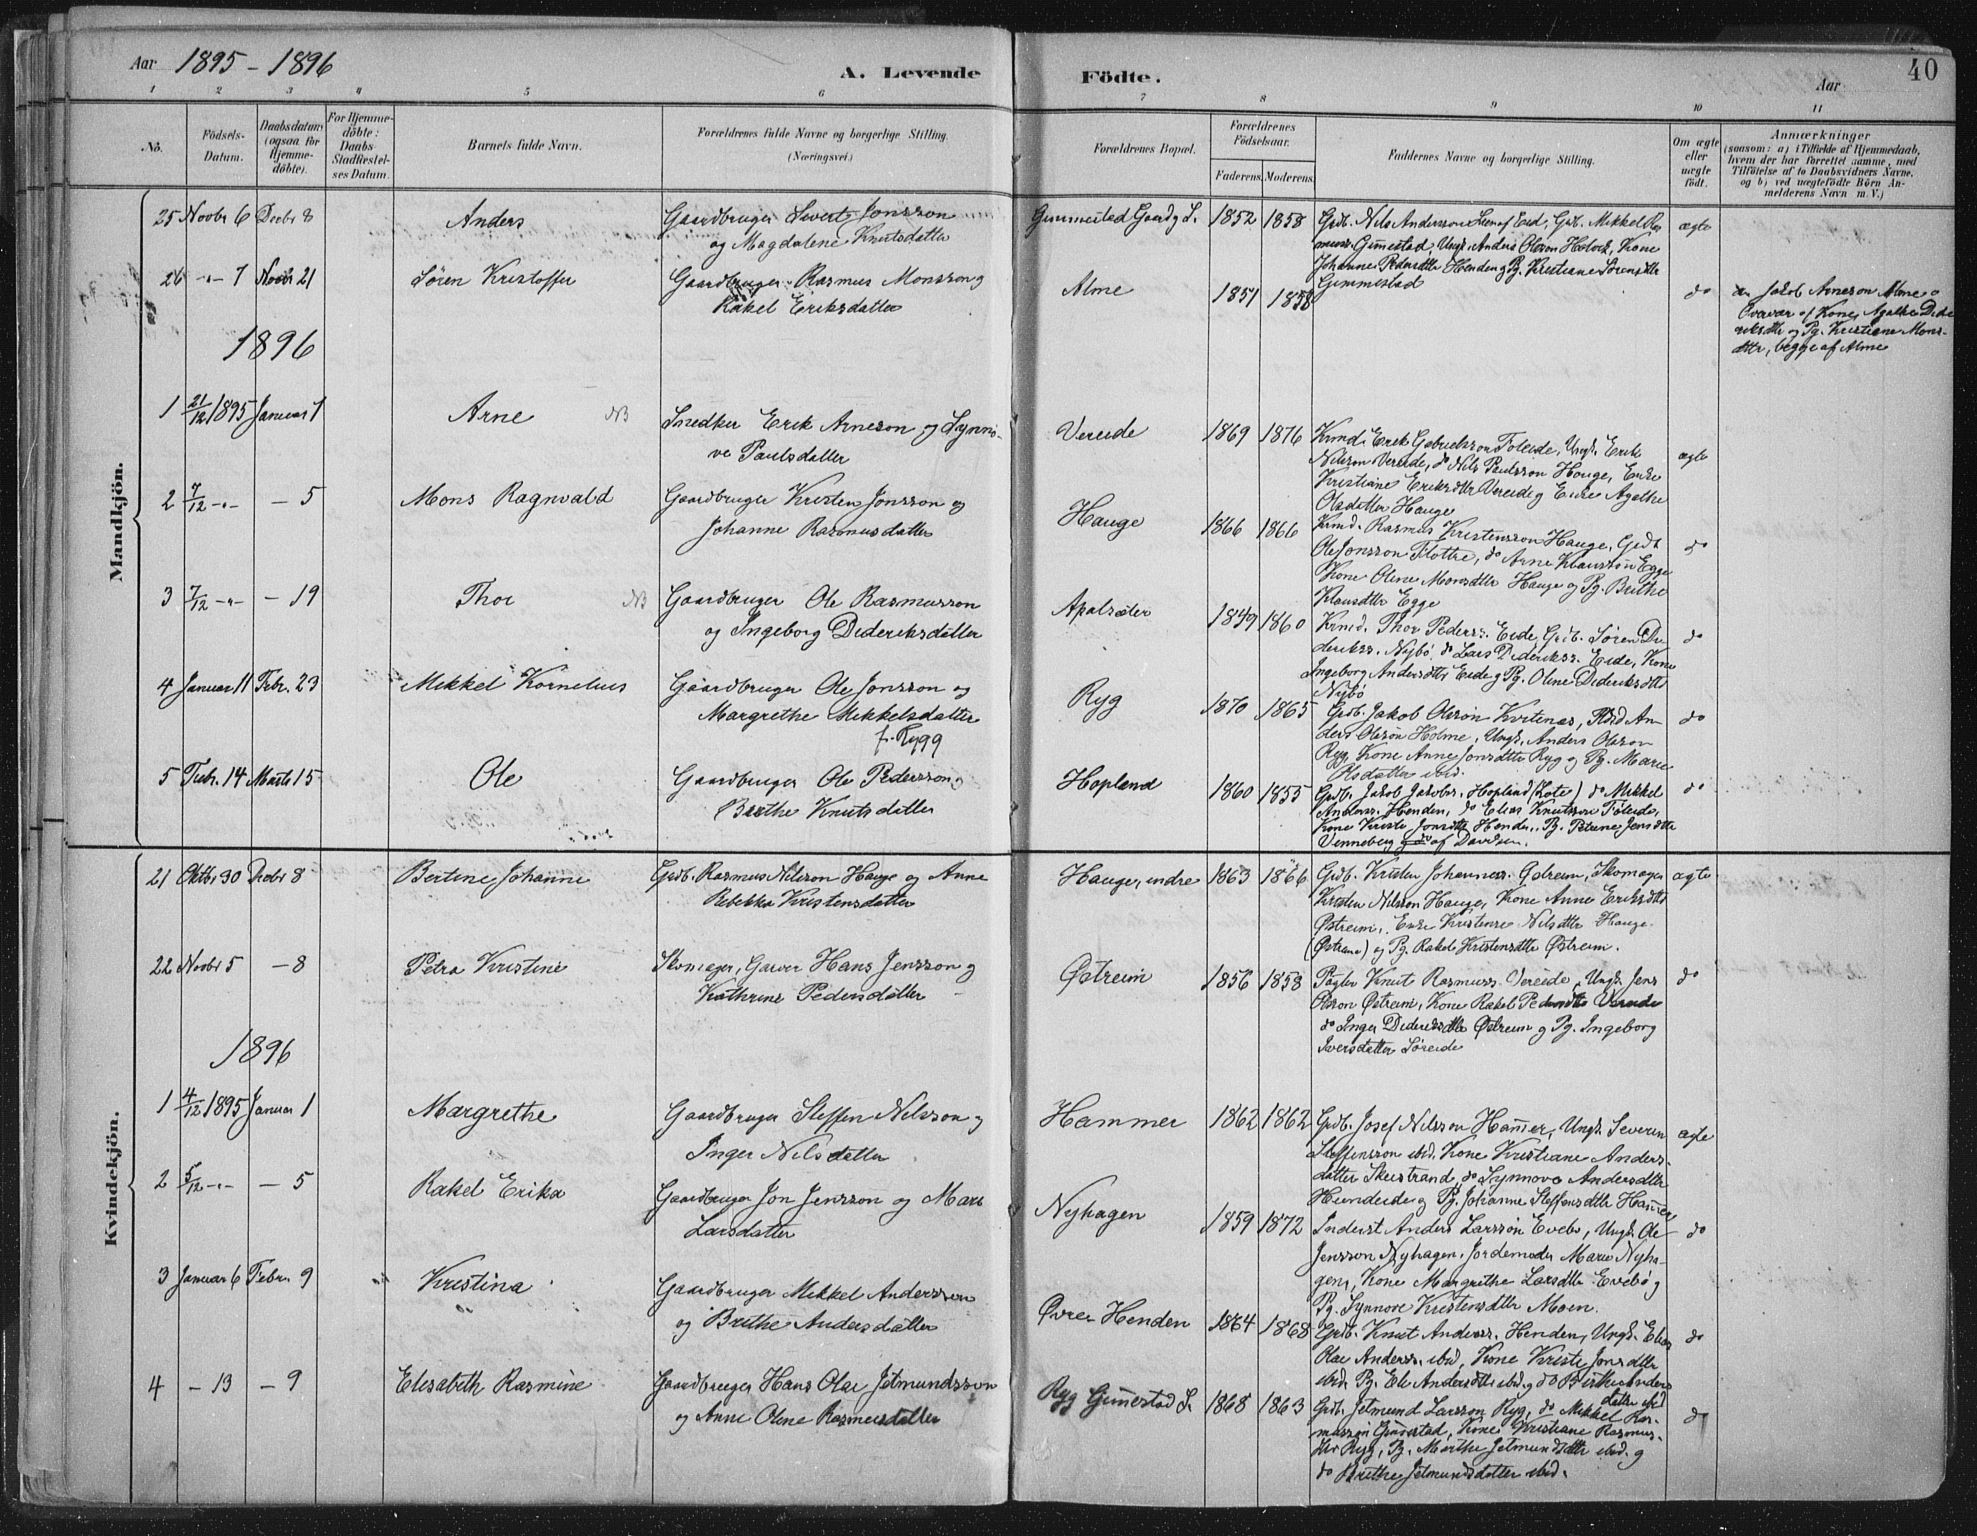 Aar 1895 - 1896
A. Levende Födte.
Aar
40
1 2 3 4 5 6 7 8 9 10 11
No.
Födsels-Datum.
Daabsdatum (ogsaa for Hjemme-döbte).
For Hjemme-döbte: Daabs-Stadfæstel-ses Datum.
Barnets fulde Navn.
Forældrenes fulde Navne og borgerlige Stilling. (Næringsvei.)
Forældrenes Bopæl.
Forældrenes Födselsaar.
Faderens. Moderens.
Faddernes Navne og borgerlige Stilling.
Om ægte eller uægte födt.
Anmærkninger
(saasom: a) i Tilfælde af Hjemmedaab, hvem der har forrettet samme, med Tilföielse af to Daabsvidners Navne. og b) ved uægtefödte Börn An-melderens Navn m. V.)
Mandkjön.
25 Novbr 6 Decbr 8 Anders Gaardbruger Sivert Jonsson
og Magdalene Knutsdatter
Gimmestad Gaard 1852 1858 Grdb. Nils Andersson, Grdb. Mikkel Ras
muss. Gimestad, Ungk. Anders Olsson, Kone
Johanne Pedersdtr Henden og Pg. Kristiane Sørensdtr
Gimmestad
ægte
26 -"- 7 Novbr 21 Søren Kristoffer Gaardbruger Rasmus Monsson og
Rakel Eriksdatter
Alme 1851 1858 do
a. Jakob Arneson Alme
Overvær af Kone Agathe Dide
riksdtr og Pg. Kristiane Mons-
dttr, begge af Alme
1896
1 21/12 1895 Januar 1 Arne NB Snedker Erik Arneson og Synni-
ve Paulsdatter
Vereide 1869 1876 Krmd. Erik Gabrielsson Foleide, Ungk. Erik
Nilsson Vereide, do Nils Paulsson Hauge, Enke
Kristiane Eriksdtr Vereide og Enke Agathe
Olsdatter Hauge
ægte
2 7/12 -"- - 5 Mons Ragnvald Gaardbruger Kristen Jonsson og
Johanne Rasmusdatter
Hauge 1866 1866 Krmd. Rasmus Kristensson Hauge, Grdb.
Ole Jonsson Flotte, do Arne Klausson Egge
Kone Oline Monsdtr Hauge og Pg. Brithe
Klausdtr Egge
do
3 7/12 -"- - 19 Thor NB Gaardbruger Ole Rasmusson
og Ingeborg Dideriksdatter
Apalsæter 1849 1860 Krmd. Thor Peders. Eide, Grdb. Søren Di
derikss. Nybø, do Lars Diderikss. Eide, Kone
Ingeborg Andersdtr Eide og Pg. Oline Dideriksdtr
Nybø
do
4 Januar 11 Febr. 23 Mikkel Kornelius Gaardbruger Ole Jonsson og
Margrethe Mikkelsdatter
f. Rygg
Ryg 1870 1865 Grdb. Jakob Olsson, An
ders Olsson Holme, Ungk. Anders Olsson
Ryg, Kone Anne Jonsdtr Ryg og Pg. Marie
Olsdatter ibid.
do
5 Febr. 14 Marts 15 Ole Gaardbruger Ole Pedersson og
Brithe Knutsdatter
Hopland 1860 1855 Grdb. Jakob Jakobs. Hopland (Lote) do Mikkel
Anderss. Henden, do Elias Knutsson Foleide,
Kone Kristi Jonsdtr Henden, Pg. Petrine Jensdtr
Venneberg af Davidsen.
do
Kvindekjön.
21 Oktbr 30 Decbr 8 Bertine Johanne Grdb. Rasmus Nilsson Hauge og Anne
Rebekka Kristensdatter
Hauge, indre 1863 1866 Grdb. Kristen Johanness. Gotreim, Skomager
Kristen Nilsson Hauge, Kone Anne Eriksdtr
Østreim, Enke Kristense Nilsdtr Hauge
og Pg. Rakel Kristensdtr Østreim.
ægte
22 Novbr 5 - 8 Petra Kristine Skomager, Garver Hans Jensson og
Kathrine Pedersdatter
Østreim 1856 1858 Knut Rasmuss. Vereide, Ungk. Jens
Olsson Østreim, Kone Rakel Pedersdtr Vereide
do Inger Dideriksdtr Østreim og Pg. Ingeborg
Iversdatter Søreide
do
1896
1 4/12 1895 Januar 1 Margrethe Gaardbruger Steffen Nilsson og
Inger Nilsdatter
Hammer 1862 1862 Grdb. Josef Nilsson Hamer, Ungk. Severin
Steffensson ibid. Kone Kristiane Anders-
datter Skeistrand, do Synnove Andersdtr
Hundeide og Pg. Johanne Steffensdtr Hamer
ægte
2 5/12 -"- - 5 Rakel Erika Gaardbruger Jon Jensson og Mari
Larsdatter
Nyhagen 1859 1872 Inderst Anders Larsson Evebø, Ungk. Ole
Jensson Nyhagen, Jordemoder Marie Nyha-
gen, Kone Margrethe Larsdtr Evebø og
Pg. Synnove Kristensdtr Moen.
do
3 Januar 6 Febr. 9 Kristina Gaardbruger Mikkel Andersson
og Brithe Andersdatter
Øvre Henden 1864 1868 Grdb. Knut Anderss. Henden, Ungk. Elias
Olai Anderss. ibid, Kone Kristi Jonsdtr
ibid. Pg. Eli Andersdtr ibid. og do Brithe Anders
datter ibid
do
4 - 13 - 9 Elisabeth Rasmine Gaardbruger Hans Olai Jetmundsson
og Anne Oline Rasmusdatter
Ryg Gimestad 1868 1863 Grdb. Jetmund Larsson Ryg, do Mikkel Ras-
musson Gimestad, Kone Kristiane Rasmus-
dtr Ryg, Pg. Marthe Jetmundsdtr ibid. og
do Brithe Jetmundsdatter ibid.
do